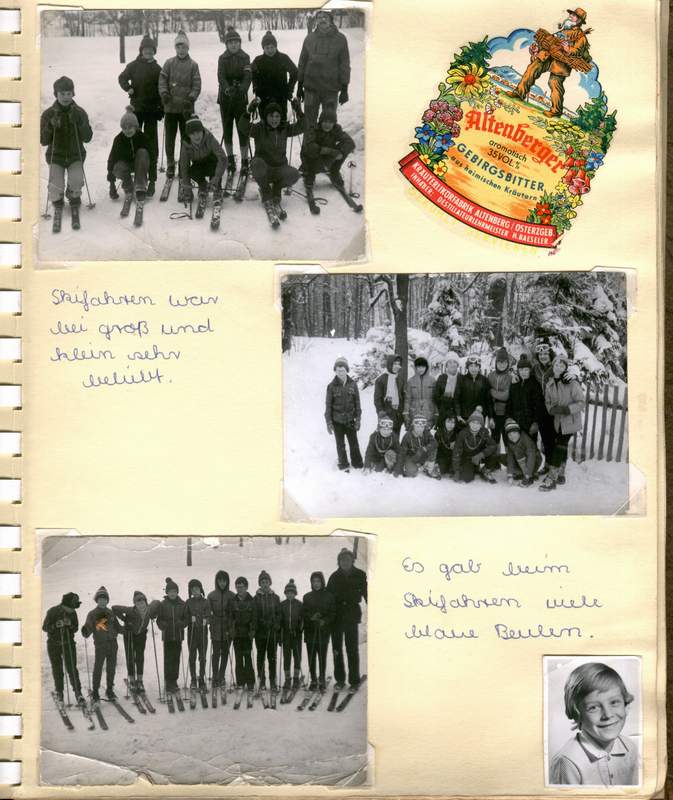 Altenberger
aromatisch
35VOL%
GEBIRGSBITTER
aus heimischen Kräutern
KRÄUTERLIKÖRFABRIK ALTENBERG/OSTERZGEB.
INHABER: DESTILLATEURLEHRMEISTER H. BAESELER
Skifahren war
bei groß und
klein sehr
beliebt.
Es gab beim
Skifahren viele
blaue Beulen.